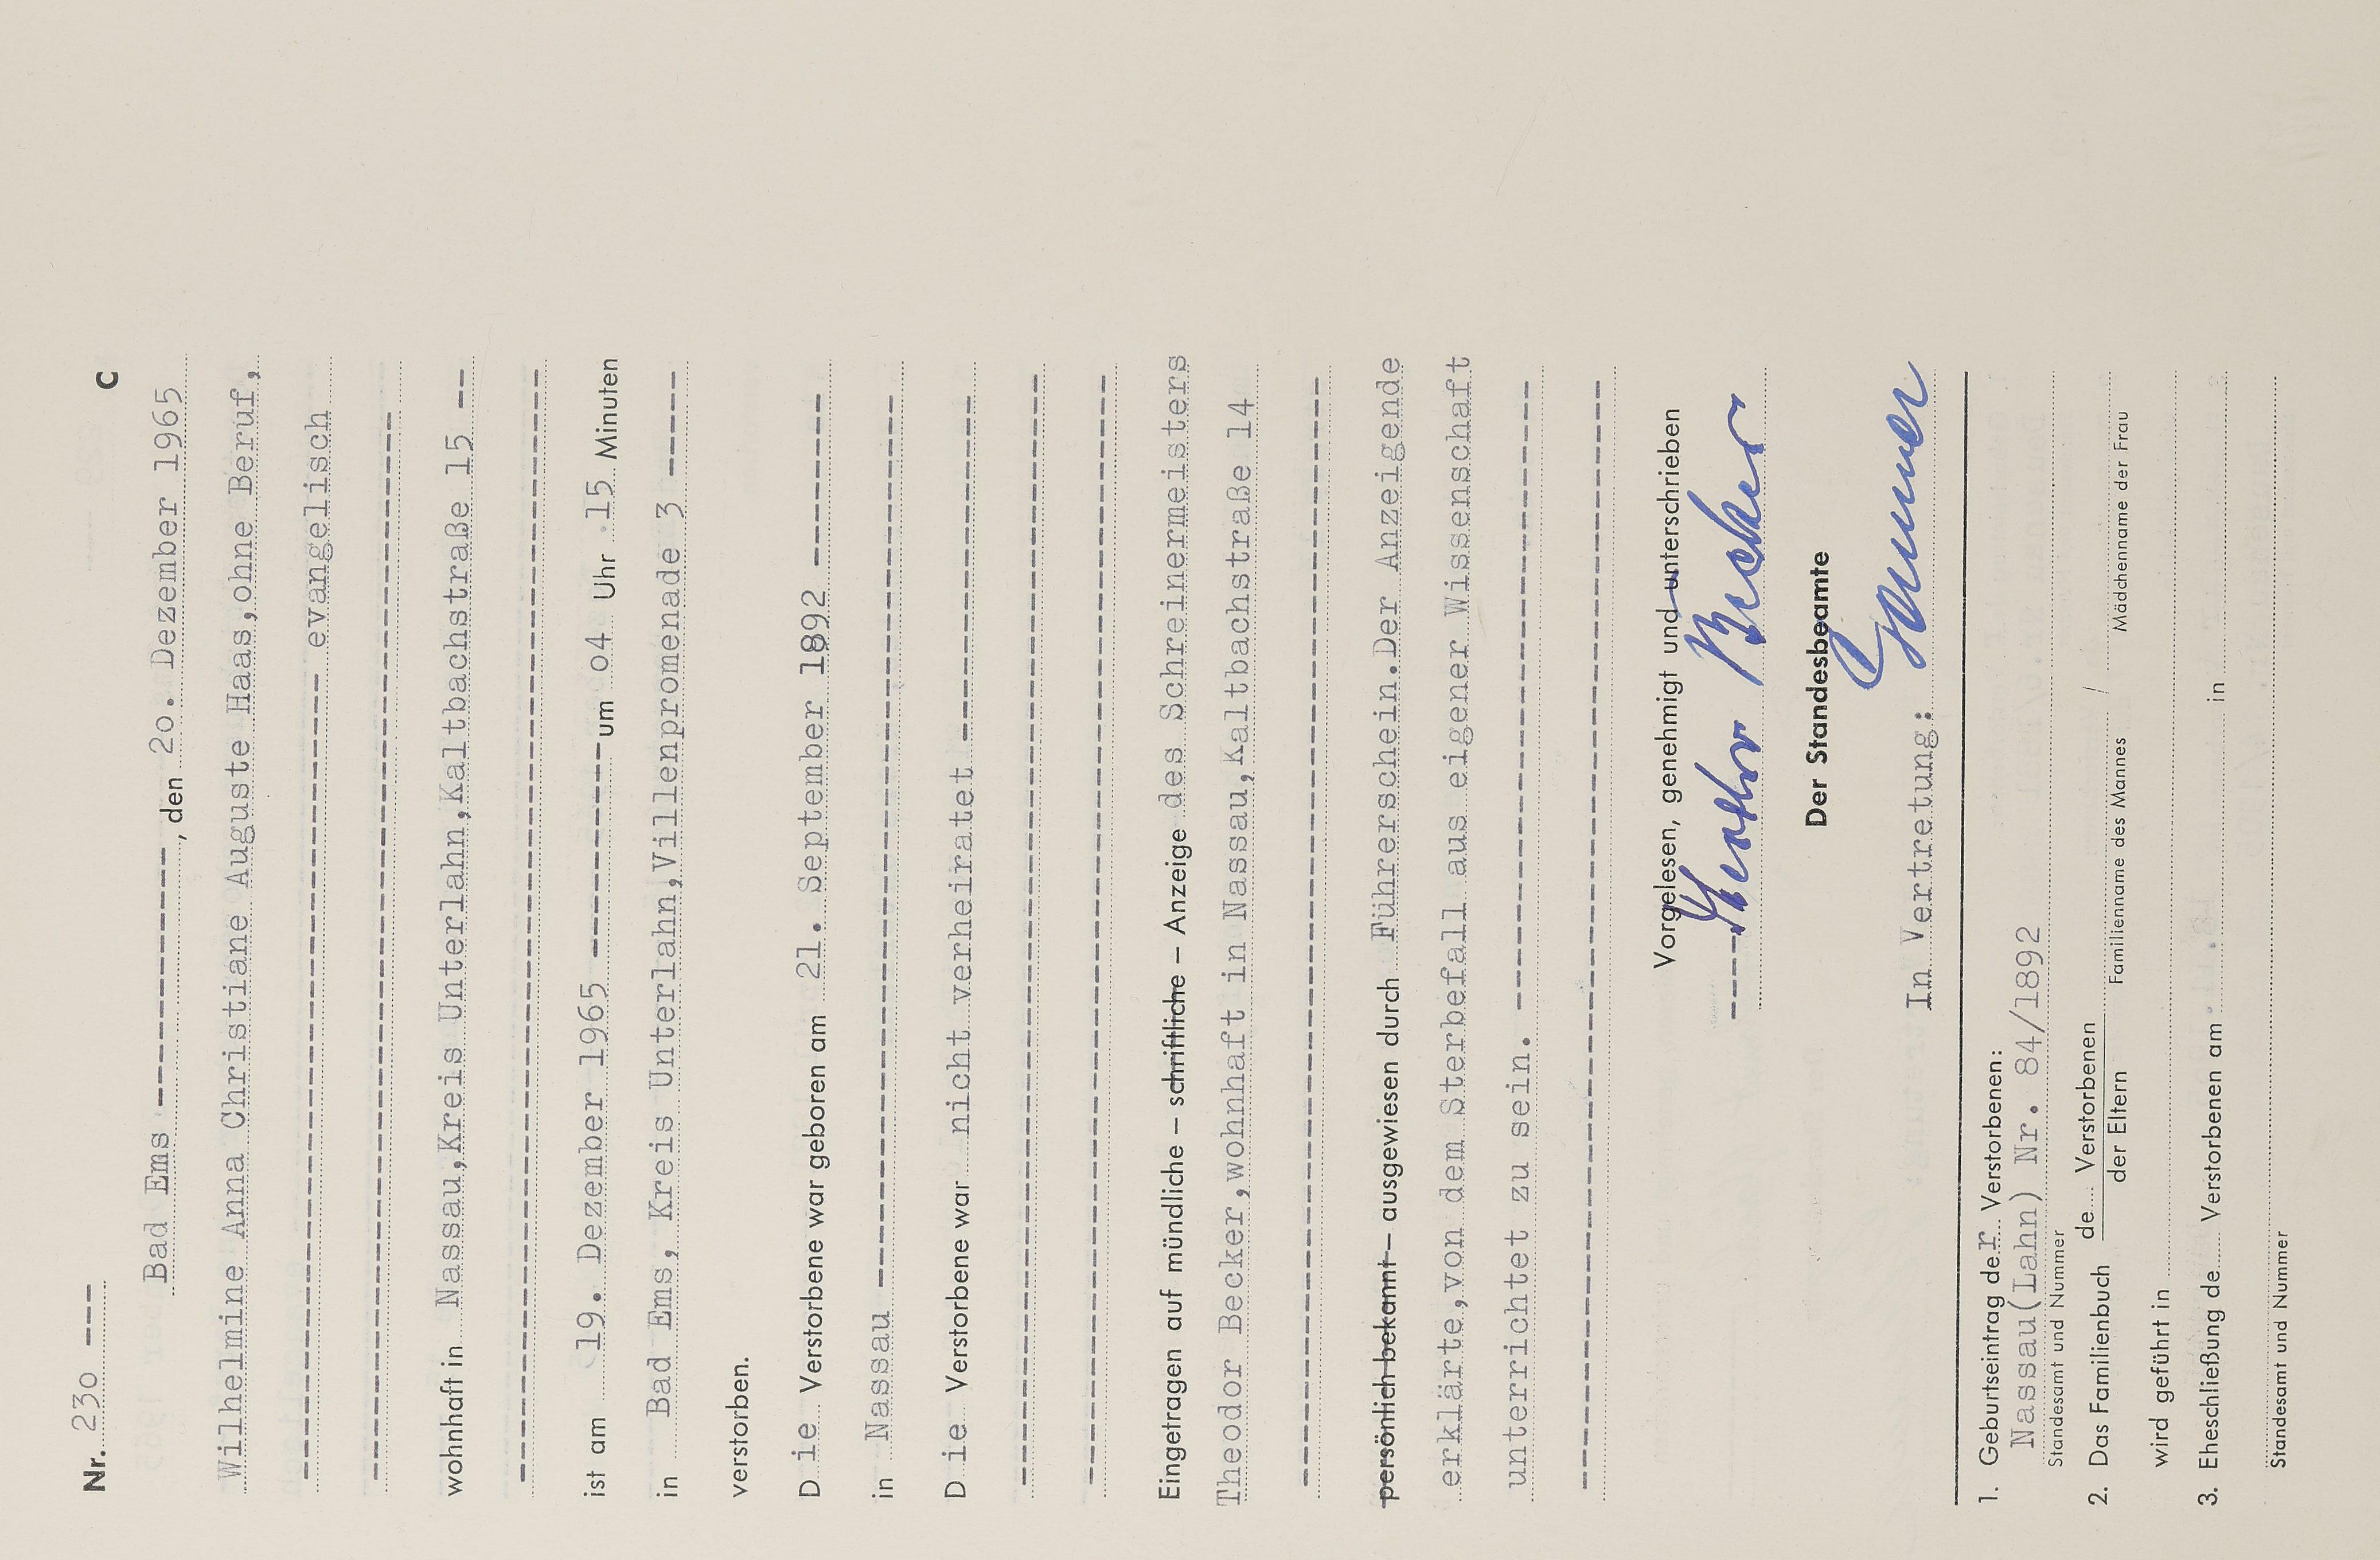 Nr. 230 --- C
Bad Ems ---------------, den 20. Dezember 1965
Wilhelmine Anna Christiane Auguste Haas,ohne Beruf,
------------------------------------------ evangelisch
------------------------------------------------------------
wohnhaft in Nassau,Kreis Unterlahn,Kaltbachstraße 15 --
------------------------------------------------------------
ist am 19. Dezember 1965 -----------um o4 Uhr 15 Minuten
in Bad Ems, Kreis Unterlahn,Villenpromenade 3 -----
verstorben.
Die Verstorbene war geboren am 21. September 1892 ---------
in Nassau -----------------------------------------------
Die Verstorbene war nicht verheiratet -----------------
------------------------------------------------------------
------------------------------------------------------------
Eingetragen auf mündliche – schriftliche – Anzeige des Schreinermeisters
Theodor Becker,wohnhaft in Nassau,Kaltbachstraße 14
------------------------------------------------------------
persönlich bekannt – ausgewiesen durch Führerschein.Der Anzeigende
erklärte,von dem Sterbefall aus eigener Wissenschaft
unterrichtet zu sein. ----------------------------------
------------------------------------------------------------
Vorgelesen, genehmigt und unterschrieben
----Theodor Becker
Der Standesbeamte
In Vertretung:
1. Geburtseintrag der Verstorbenen:
Nassau(Lahn) Nr. 84/1892
Standesamt und Nummer
2. Das Familienbuch de Verstorbenen / 
der Eltern Familienname des Mannes Mädchenname der Frau
wird geführt in
3. Eheschließung de Verstorbenen am in
Standesamt und Nummer